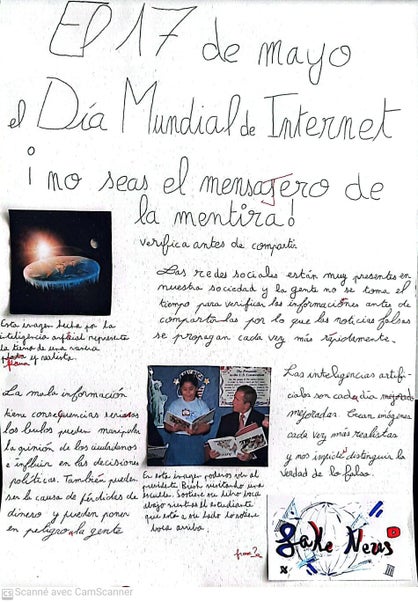 El 17 de mayo
el Día Mundial de Internet
¡no seas el mensajero de
la mentira!
verifica antes de compartir
Las redes sociales están muy presentes en
nuestra sociedad y la gente no se toma el
tiempo para verificar las informaciones antes de
compartirlas por lo que las noticias falsas
se propagan cada vez más rápidamente.
Esta imagen hecha por la
inteligencia artificial representa
la tierra de una manera
plana y realista
plana
La mala información
tiene consecuencias serias
los bulos pueden manipular
la opinión de los ciudadanos
e influir en las decisiones
políticas. También pueden
ser la causa de pérdidas de
dinero y pueden poner
en peligro a la gente
En esta imagen podemos ver al
presidente Bush visitando una
escuela. Sostiene su libro boca
abajo mientras el estudiante
que está a su lado lo sostiene
boca arriba.
Las inteligencias artifi-
ciales son cada día mejoradas
mejoradas. Crean imágenes
cada vez más realistas
y nos impide distinguir la
verdad de lo falso.
Fake News
CS Scanné avec CamScanner